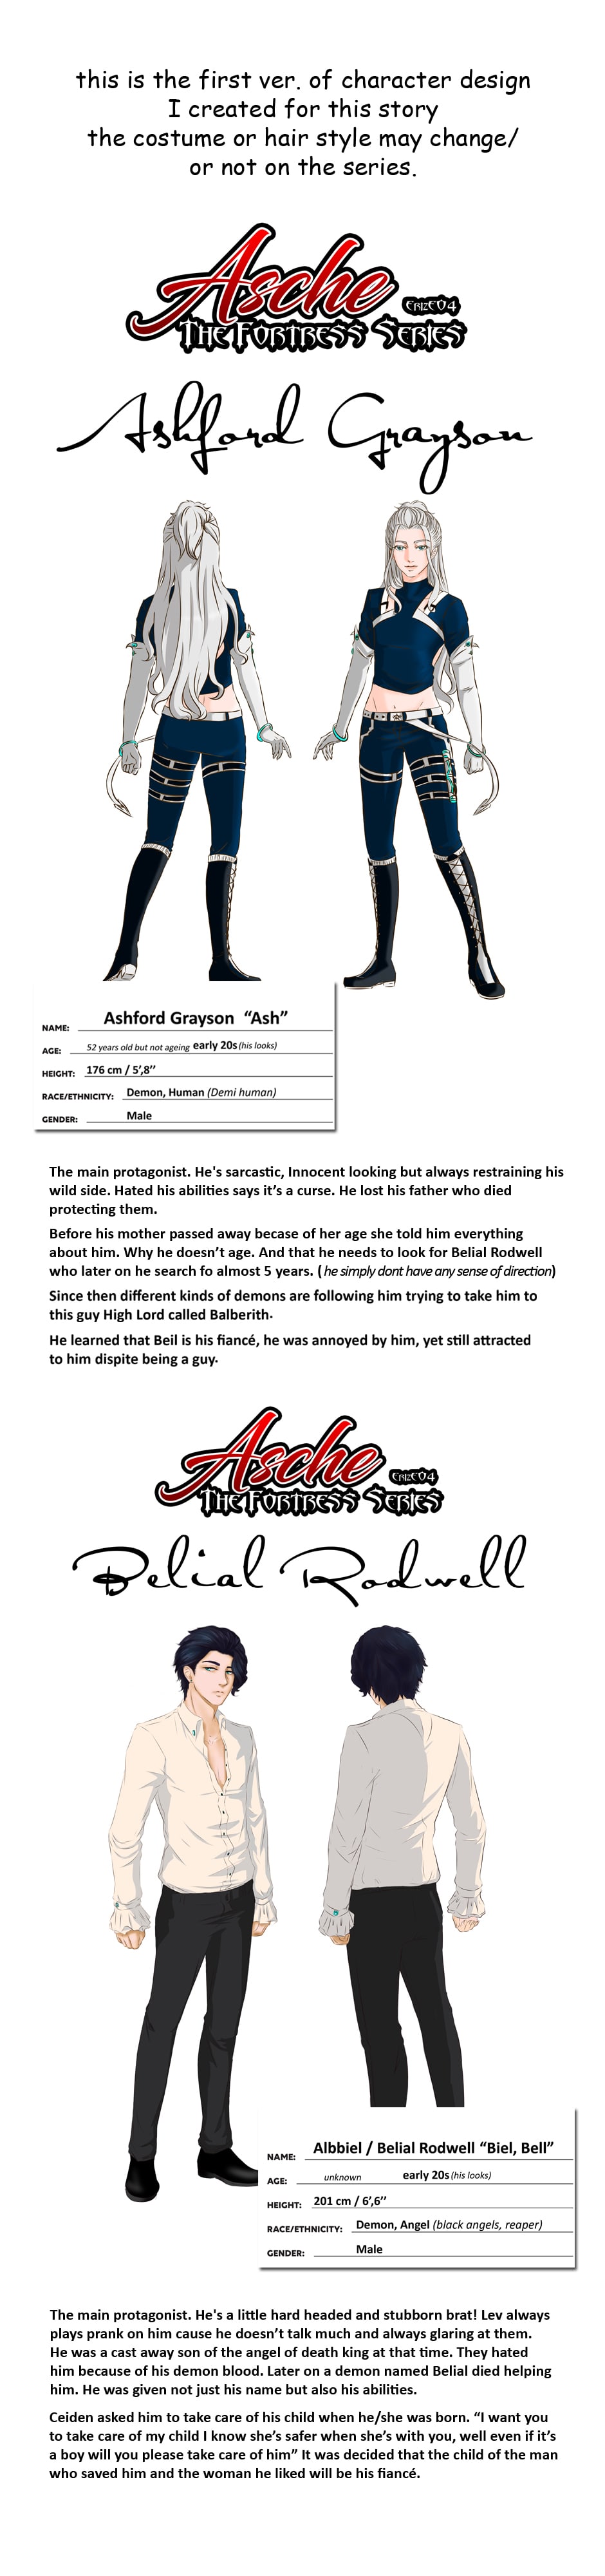 this is the first ver. of character design
I created for this story
the costume or hair style may change/
or not on the series.
Asche
ErizE04
The Fortress Series
Ashford Grayson
NAME: Ashford Grayson “Ash”
AGE: 52 years old but not ageing early 20s (his looks)
HEIGHT: 176 cm / 5’,8’’
RACE/ETHNICITY: Demon, Human (Demi human)
GENDER: Male
The main protagonist. He's sarcastic, Innocent looking but always restraining his
wild side. Hated his abilities says it’s a curse. He lost his father who died
protecting them.
Before his mother passed away becase of her age she told him everything
about him. Why he doesn’t age. And that he needs to look for Belial Rodwell
who later on he search fo almost 5 years. ( he simply dont have any sense of direction)
Since then different kinds of demons are following him trying to take him to
this guy High Lord called Balberith.
He learned that Beil is his fiancé, he was annoyed by him, yet still attracted
to him dispite being a guy.
Asche
ErizE04
The Fortress Series
Belial Rodwell
NAME: Albbiel / Belial Rodwell “Biel, Bell”
AGE: unknown early 20s (his looks)
HEIGHT: 201 cm / 6’,6’’
RACE/ETHNICITY: Demon, Angel (black angels, reaper)
GENDER: Male
The main protagonist. He's a little hard headed and stubborn brat! Lev always
plays prank on him cause he doesn’t talk much and always glaring at them.
He was a cast away son of the angel of death king at that time. They hated
him because of his demon blood. Later on a demon named Belial died helping
him. He was given not just his name but also his abilities.
Ceiden asked him to take care of his child when he/she was born. “I want you
to take care of my child I know she’s safer when she’s with you, well even if it’s
a boy will you please take care of him” It was decided that the child of the man
who saved him and the woman he liked will be his fiancé.